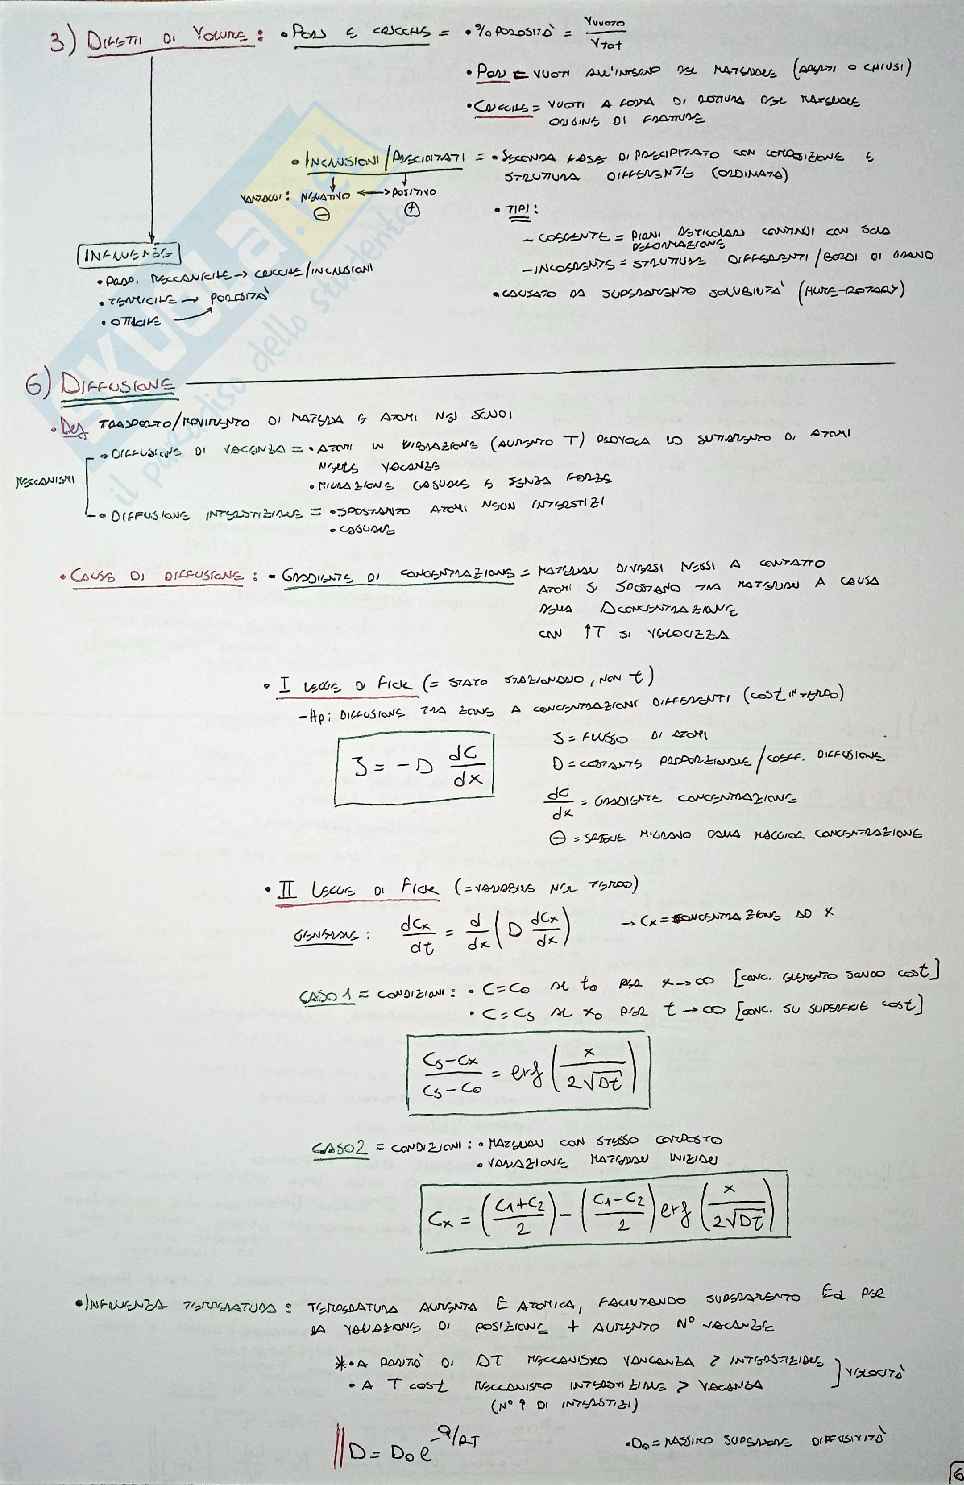 3) DIFETTI DI VOLUME : • PORI E CRICCHE = • % POROSITÀ = Vvuoto / Vtot
• PORI = VUOTI ALL'INTERNO DEL MATERIALE (APERTI O CHIUSI)
• CRICCHE = VUOTI A FORMA DI ROTTURA DEL MATERIALE
ORIGINE DI FRATTURE
• INCLUSIONI / PRECIPITATI = • SECONDA FASE DI PRECIPITATO CON COMPOSIZIONE E
STRUTTURA DIFFERENTE (ORDINATA)
VANTAGGI : NEGATIVO ⟷ POSITIVO
⊖ ⊕
• TIPI :
- COERENTE = PIANI RETICOLARI CONTINUI CON SOLA
DEFORMAZIONE
- INCOERENTE = STRUTTURE DIFFERENTI / BORDI DI GRANO
• CAUSATO DA SUPERAMENTO SOLUBILITÀ (HUME-ROTARY)
INFLUENZE
• PROP. MECCANICHE → CRICCHE / INCLUSIONI
• TERMICHE → POROSITÀ
• OTTICHE
SKUOLA.net
il paradiso dello studente
6) DIFFUSIONE
• Def TRASPORTO/MOVIMENTO DI MATERIA E ATOMI NEI SOLIDI
MECCANISMI
• DIFFUSIONE DI VACANZA = • ATOMI IN VIBRAZIONE (AUMENTO T) PROVOCA LO SLITTAMENTO DI ATOMI
NELLE VACANZE
• MIGRAZIONE CASUALE E SENZA FORZE
• DIFFUSIONE INTERSTIZIALE = • SPOSTANTO ATOMI NEGLI INTERSTIZI
• CASUALE
• CAUSE DI DIFFUSIONE : • GRADIENTE DI CONCENTRAZIONE = MATERIALI DIVERSI MESSI A CONTATTO
ATOMI SI SPOSTANO TRA MATERIALI A CAUSA
DELLA ΔCONCENTRAZIONE
CON ↑T SI VELOCIZZA
• I LEGGE DI FICK (= STATO STAZIONARIO, NON t)
- Hp: DIFFUSIONE TRA ZONE A CONCENTRAZIONI DIFFERENTI (COST IN TEMPO)
J = -D dC/dx
J = FLUSSO DI ATOMI
D = COSTANTE PROPORZIONALE / COEFF. DIFFUSIONE
dC/dx = GRADIENTE CONCENTRAZIONE
⊖ = SEGUE MIGRANO DALLA MAGGIOR CONCENTRAZIONE
• II LEGGE DI FICK (= VARIABILE NEL TEMPO)
GENERALE : dCx/dt = d/dx (D dCx/dx) → Cx = CONCENTRAZIONE AD X
CASO 1 = CONDIZIONI : • C=C0 AL t0 PER x→∞ [CONC. ELEMENTO SOLIDO COST]
• C=Cs AL x0 PER t→∞ [CONC. SU SUPERFICIE COST]
(Cs-Cx)/(Cs-C0) = erf (x/2√Dt)
CASO 2 = CONDIZIONI : • MATERIALI CON STESSO COMPOSTO
• VARIAZIONE MATERIALI INIZIALI
Cx = ((C1+C2)/2) - ((C1-C2)/2) erf (x/2√Dt)
• INFLUENZA TEMPERATURA : TEMPERATURA AUMENTA E ATOMICA, FACILITANDO SUPERAMENTO Ea PER
LA VARIAZIONE DI POSIZIONE + AUMENTO N° VACANZE
* • A PARITÀ DI ΔT MECCANISMO VANCANZA > INTERSTIZIALE
• A T cost MECCANISMO INTERSTIZIALE > VACANZA
} VELOCITÀ
(N° ↑ DI INTERSTIZI)
D = D0 e^-Q/RT
• D0 = MASSIMO SUPERIORE DIFFUSIVITÀ
6